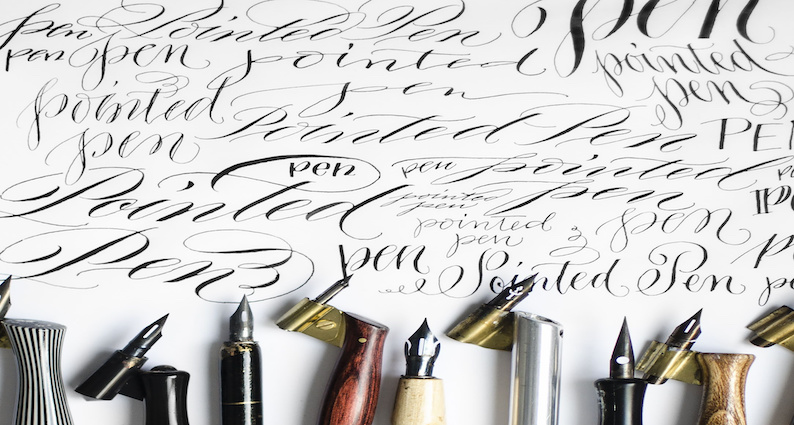 pen Pointed Pen
pen pen pointed pen pointed pen
pointed pen Pointed Pen PEN
pen pointed pen
Pointed pointed pen
pointed pen pen
Pen pen Pointed Pen